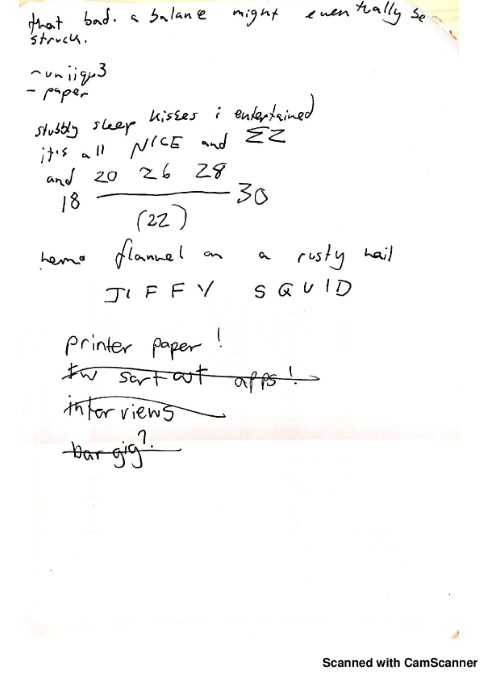 that bad. a balance might eventually be
struck.
- uniiqu3
- paper
stubbly sleep kisses i entertained
it's all NICE and EZ
and 20 26 28
18 30
(22)
flannel on a rusty nail
JIFFY SQUID
printer paper!
sort out apps!
interviews
bar gig?
Scanned with CamScanner